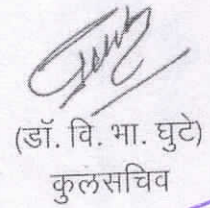 (डॉ. वि. भा. घुटे)
कुलसचिव